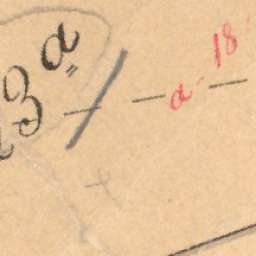 3a
a 18